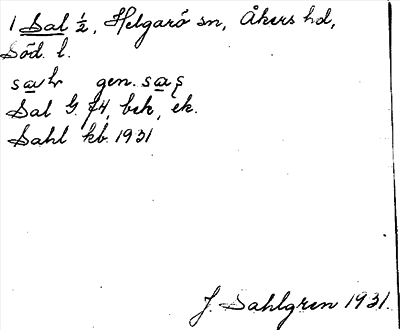 1 Sal ½, Helgarö sn, Åkers hd,
Söd. l.
gen.
Sal G. 74, bek, ek.
Sahl kb. 1931
J. Sahlgren 1931.